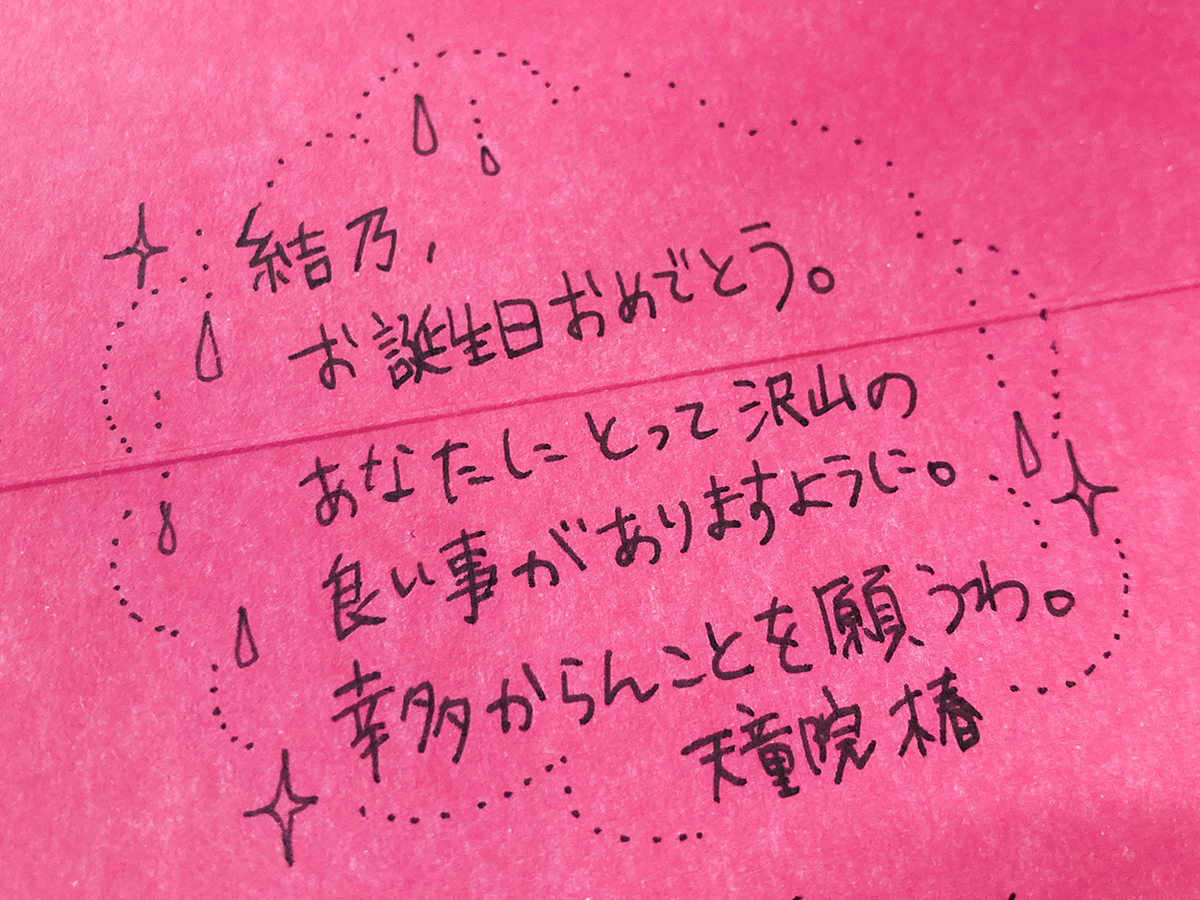 結乃,
お誕生日おめでとう。
あなたにとって沢山の
良い事がありますように。
幸多からんことを願うわ。
天童院椿